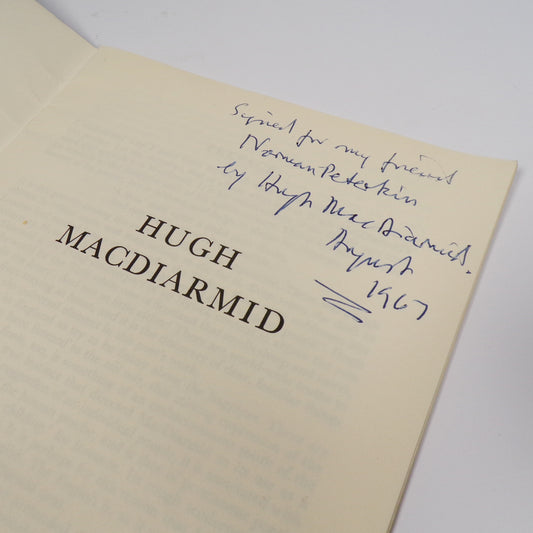 Signed for my friend
Norman Peterkin
by Hugh MacDiarmid.
August
1967
HUGH
MACDIARMID